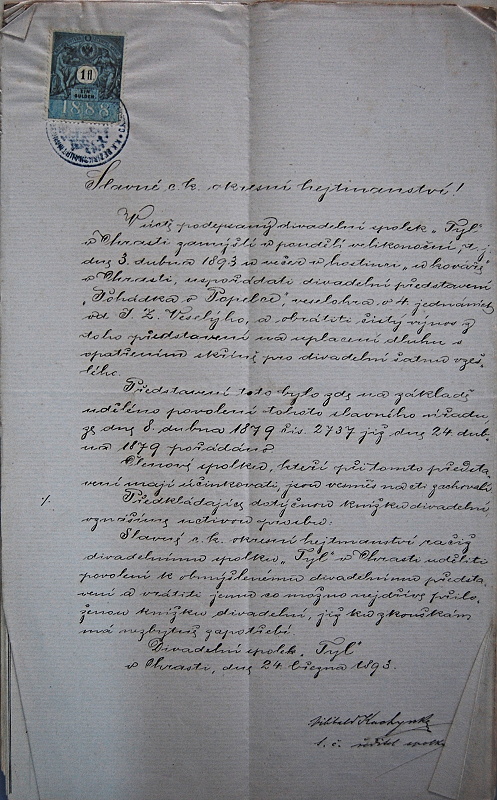 1 fl.
EIN GULDEN
1888
Slavné c. k. okresní hejtmanství!
V úctě podepsaný divadelní spolek „Tyl“
v Chrasti zamýšlí v pondělí velikonoční, t. j.
dne 3. dubna 1893 v večer v hostinci „u kováře“
v Chrasti, uspořádati divadelní představení
„Pohádka o Popelce“, veselohra o 4 jednáních
od J. Z. Veselýho, a obrátiti čistý výnos z
toho představení na uplacení dluhu s
opatřením skříně pro divadelní šatnu vzeš-
lého.
Představení toto bylo zde na základě
uděleného povolení tohoto slavného úřadu,
ze dne 8. dubna 1879 čís. 2737 již dne 24. dub-
na 1879 pořádáno.
Členové spolku, kteří při tomto předsta-
vení mají účinkovati, jsou vesměs na cti zachovalí.
Předkládajíce dotyčnou knížku divadelní
vznášíme uctivou prosbu:
Slavné c. k. okresní hejtmanství račiž
divadelnímu spolku „Tyl“ v Chrasti uděliti
povolení k obmýšlenému divadelnímu předsta-
vení a vrátiti jemu co možno nejdříve přilo-
ženou knížku divadelní, jíž ku zkouškám
má nezbytně zapotřebí.
Divadelní spolek „Tyl“
v Chrasti, dne 24 března 1893.
t. č. ředitel spolku